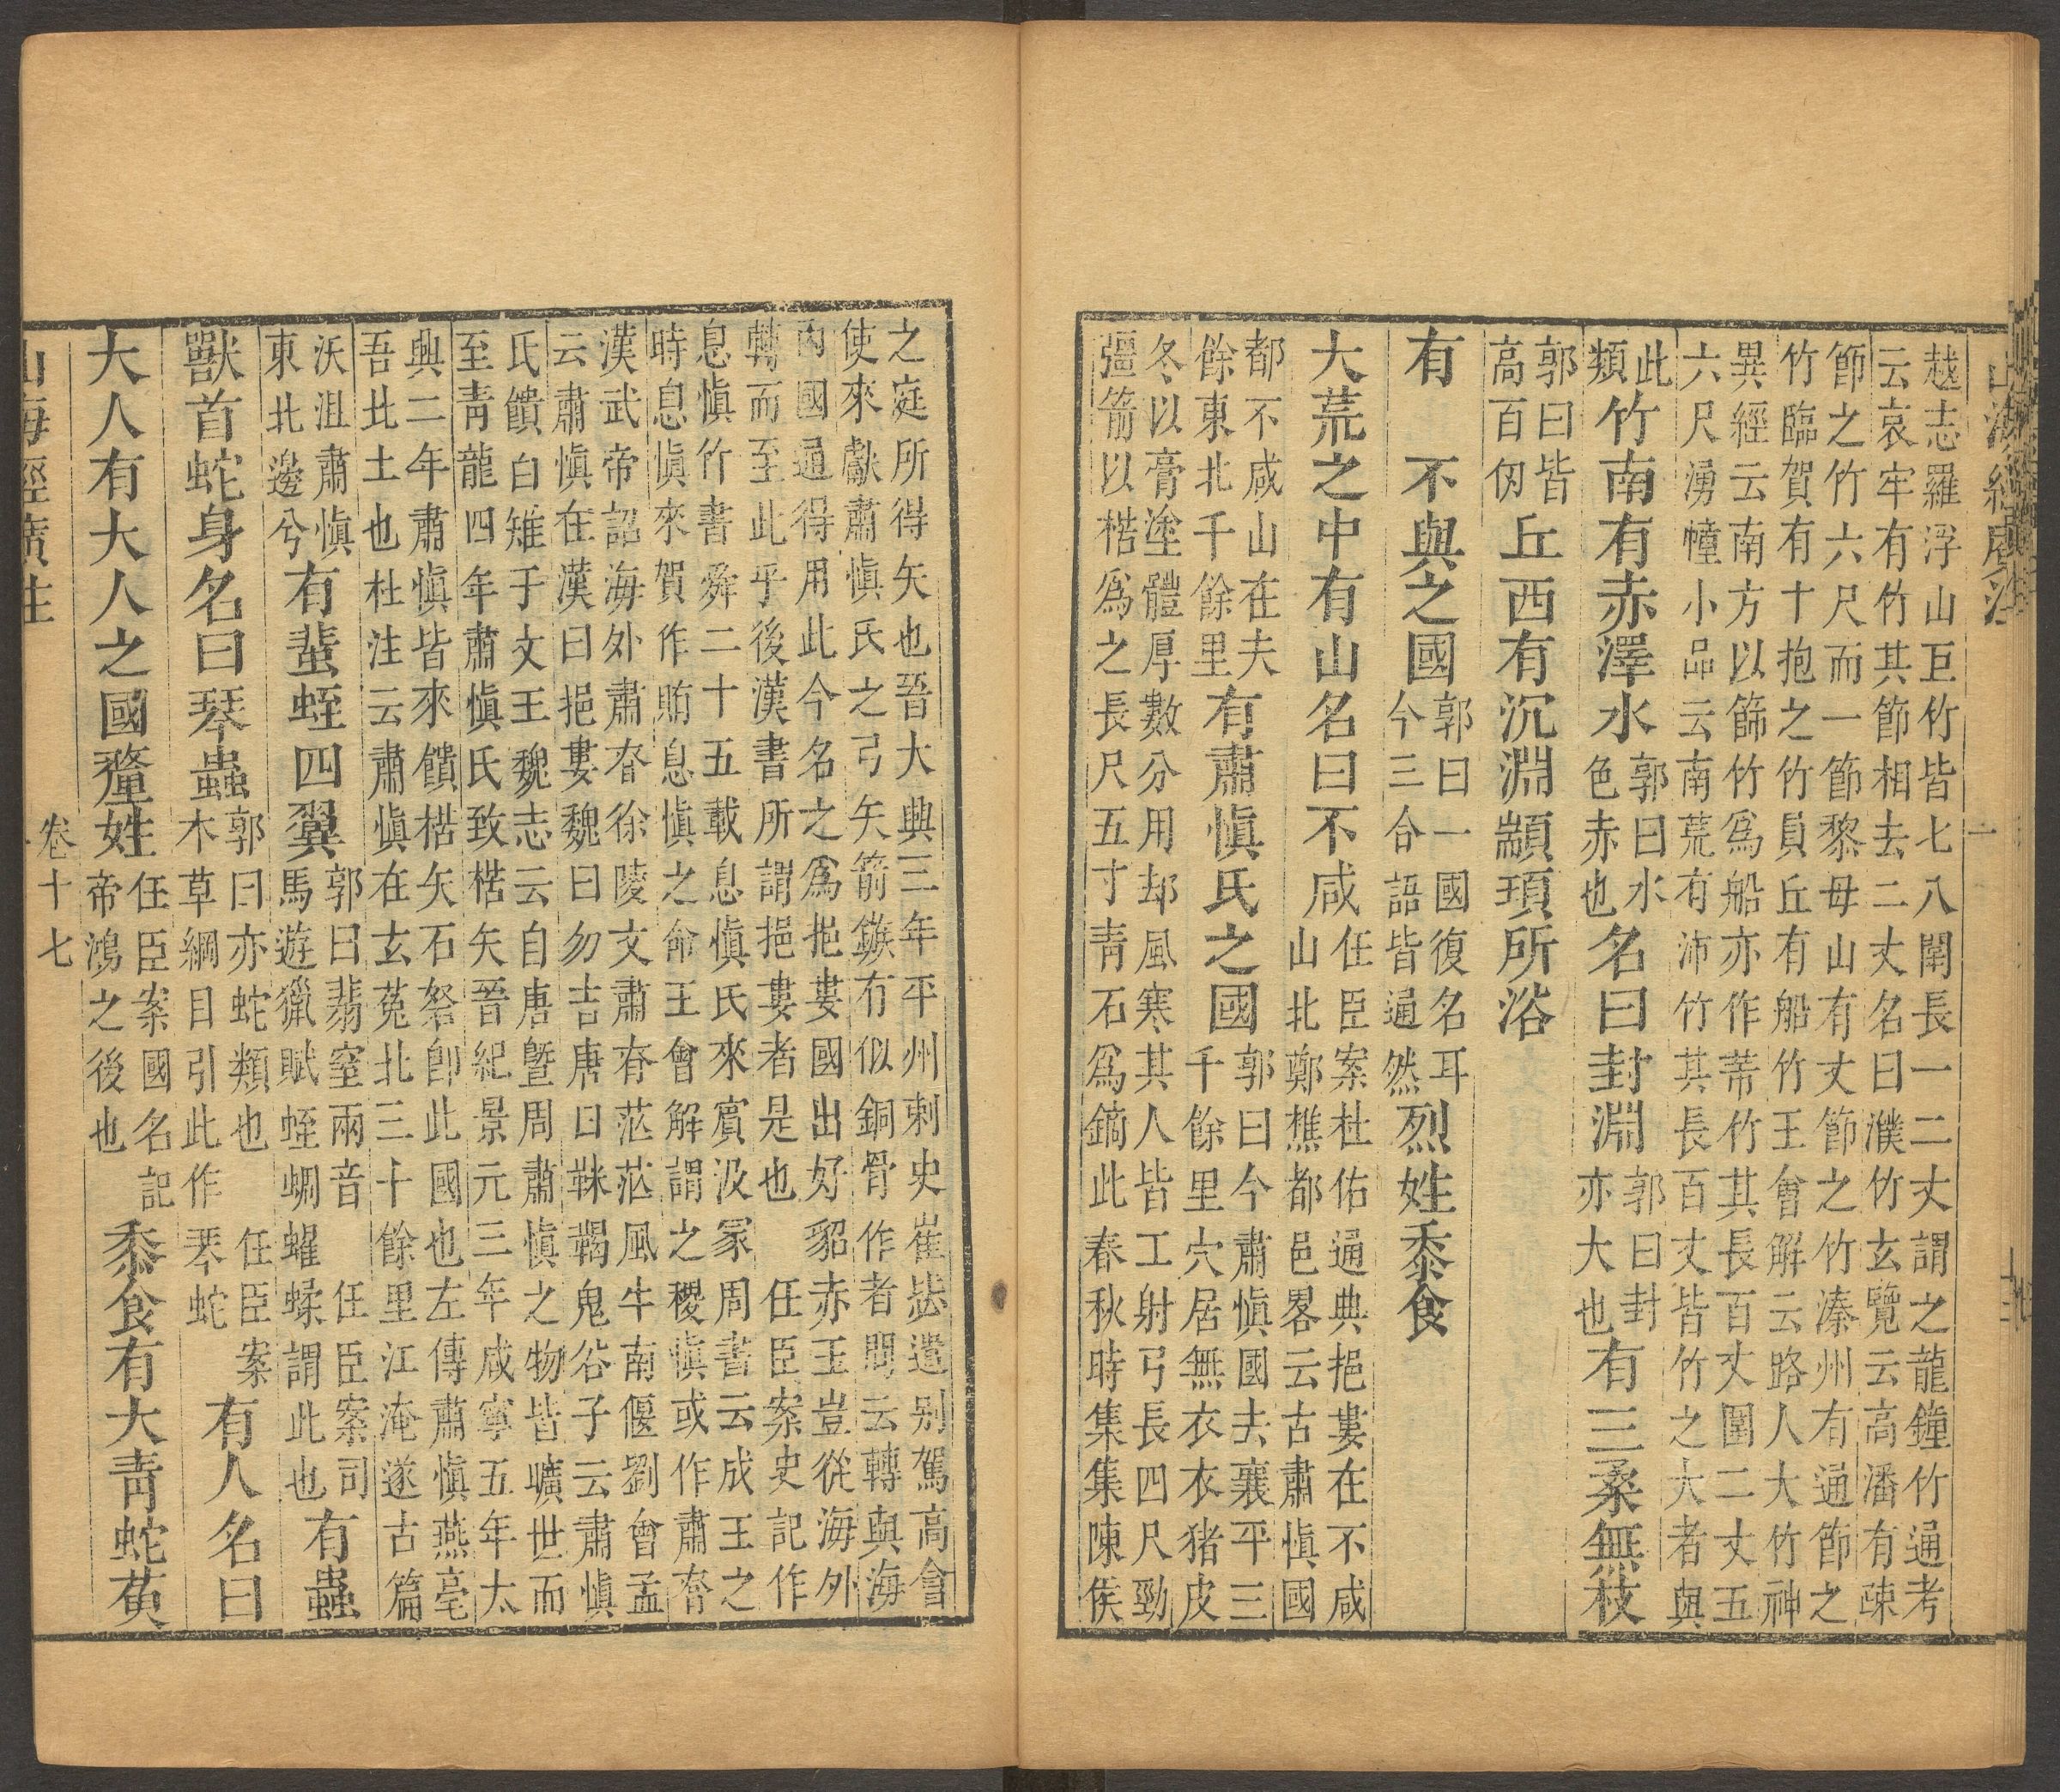 越志羅浮山巨竹皆七八閣長一二丈謂之龍鐘竹通考
云哀牢有竹其節相去二丈名曰濮竹玄覽云高潘有疎
節之竹六尺而一節黎母山有丈節之竹溱州有通節之
竹臨賀有十抱之竹員丘有船竹王會解云路人大竹神
異經云南方以篩竹爲船亦作芾竹其長百丈圍二丈五
六尺湧幢小品云南荒有沛竹其長百丈皆竹之大者與
此類竹南有赤澤水郭曰水色赤也名曰封淵郭曰封亦大也有三桑無枝
郭曰皆高百仞丘西有沉淵顓頊所浴
有 不與之國郭曰一國復名耳今三合語皆通然烈姓黍食
大荒之中有山名曰不咸任臣案杜佑通典挹婁在不咸山北鄭樵都邑畧云古肅慎國
都不咸山在夫餘東北千餘里有肅慎氏之國郭曰今肅慎國去襄平三千餘里穴居無衣衣猪皮
冬以膏塗體厚數分用却風寒其人皆工射弓長四尺勁
彊箭以楛爲之長尺五寸靑石爲鏑此春秋時集集陳侯
之庭所得矢也晉大興三年平州刺史崔毖遣别駕高會
使來獻肅慎氏之弓矢箭鏃有似銅骨作者問云轉與海
內國通得用此今名之爲挹婁國出好貂赤玉豈從海外
轉而至此乎後漢書所謂挹婁者是也 任臣案史記作
息慎竹書舜二十五載息慎氏來賓汲冢周書云成王之
時息慎來賀作賄息慎之命王會解謂之稷慎或作肅眘
漢武帝詔海外肅眘徐陵文肅眘茫茫風牛南偃劉會孟
云肅慎在漢曰挹婁魏曰勿吉唐曰靺鞨鬼谷子云肅慎
氏饋白雉于文王魏志云自唐曁周肅慎之物皆曠世而
至靑龍四年肅慎氏致楛矢晉紀景元三年咸寧五年太
興二年肅慎皆來饋楛矢石砮卽此國也左傳肅慎燕亳
吾北土也杜注云肅慎在玄菟北三十餘里江淹遂古篇
沃沮肅慎東北邊兮有蜚蛭四翼郭曰翡窒兩音 任臣案司馬遊獵賦蛭蜩蠷蝚謂此也有蟲
獸首蛇身名曰琴蟲郭曰亦蛇類也 任臣案木草綱目引此作琴蛇有人名曰
大人有大人之國釐姓任臣案國名記帝鴻之後也黍食有大靑蛇黃
山海經廣注 卷十七